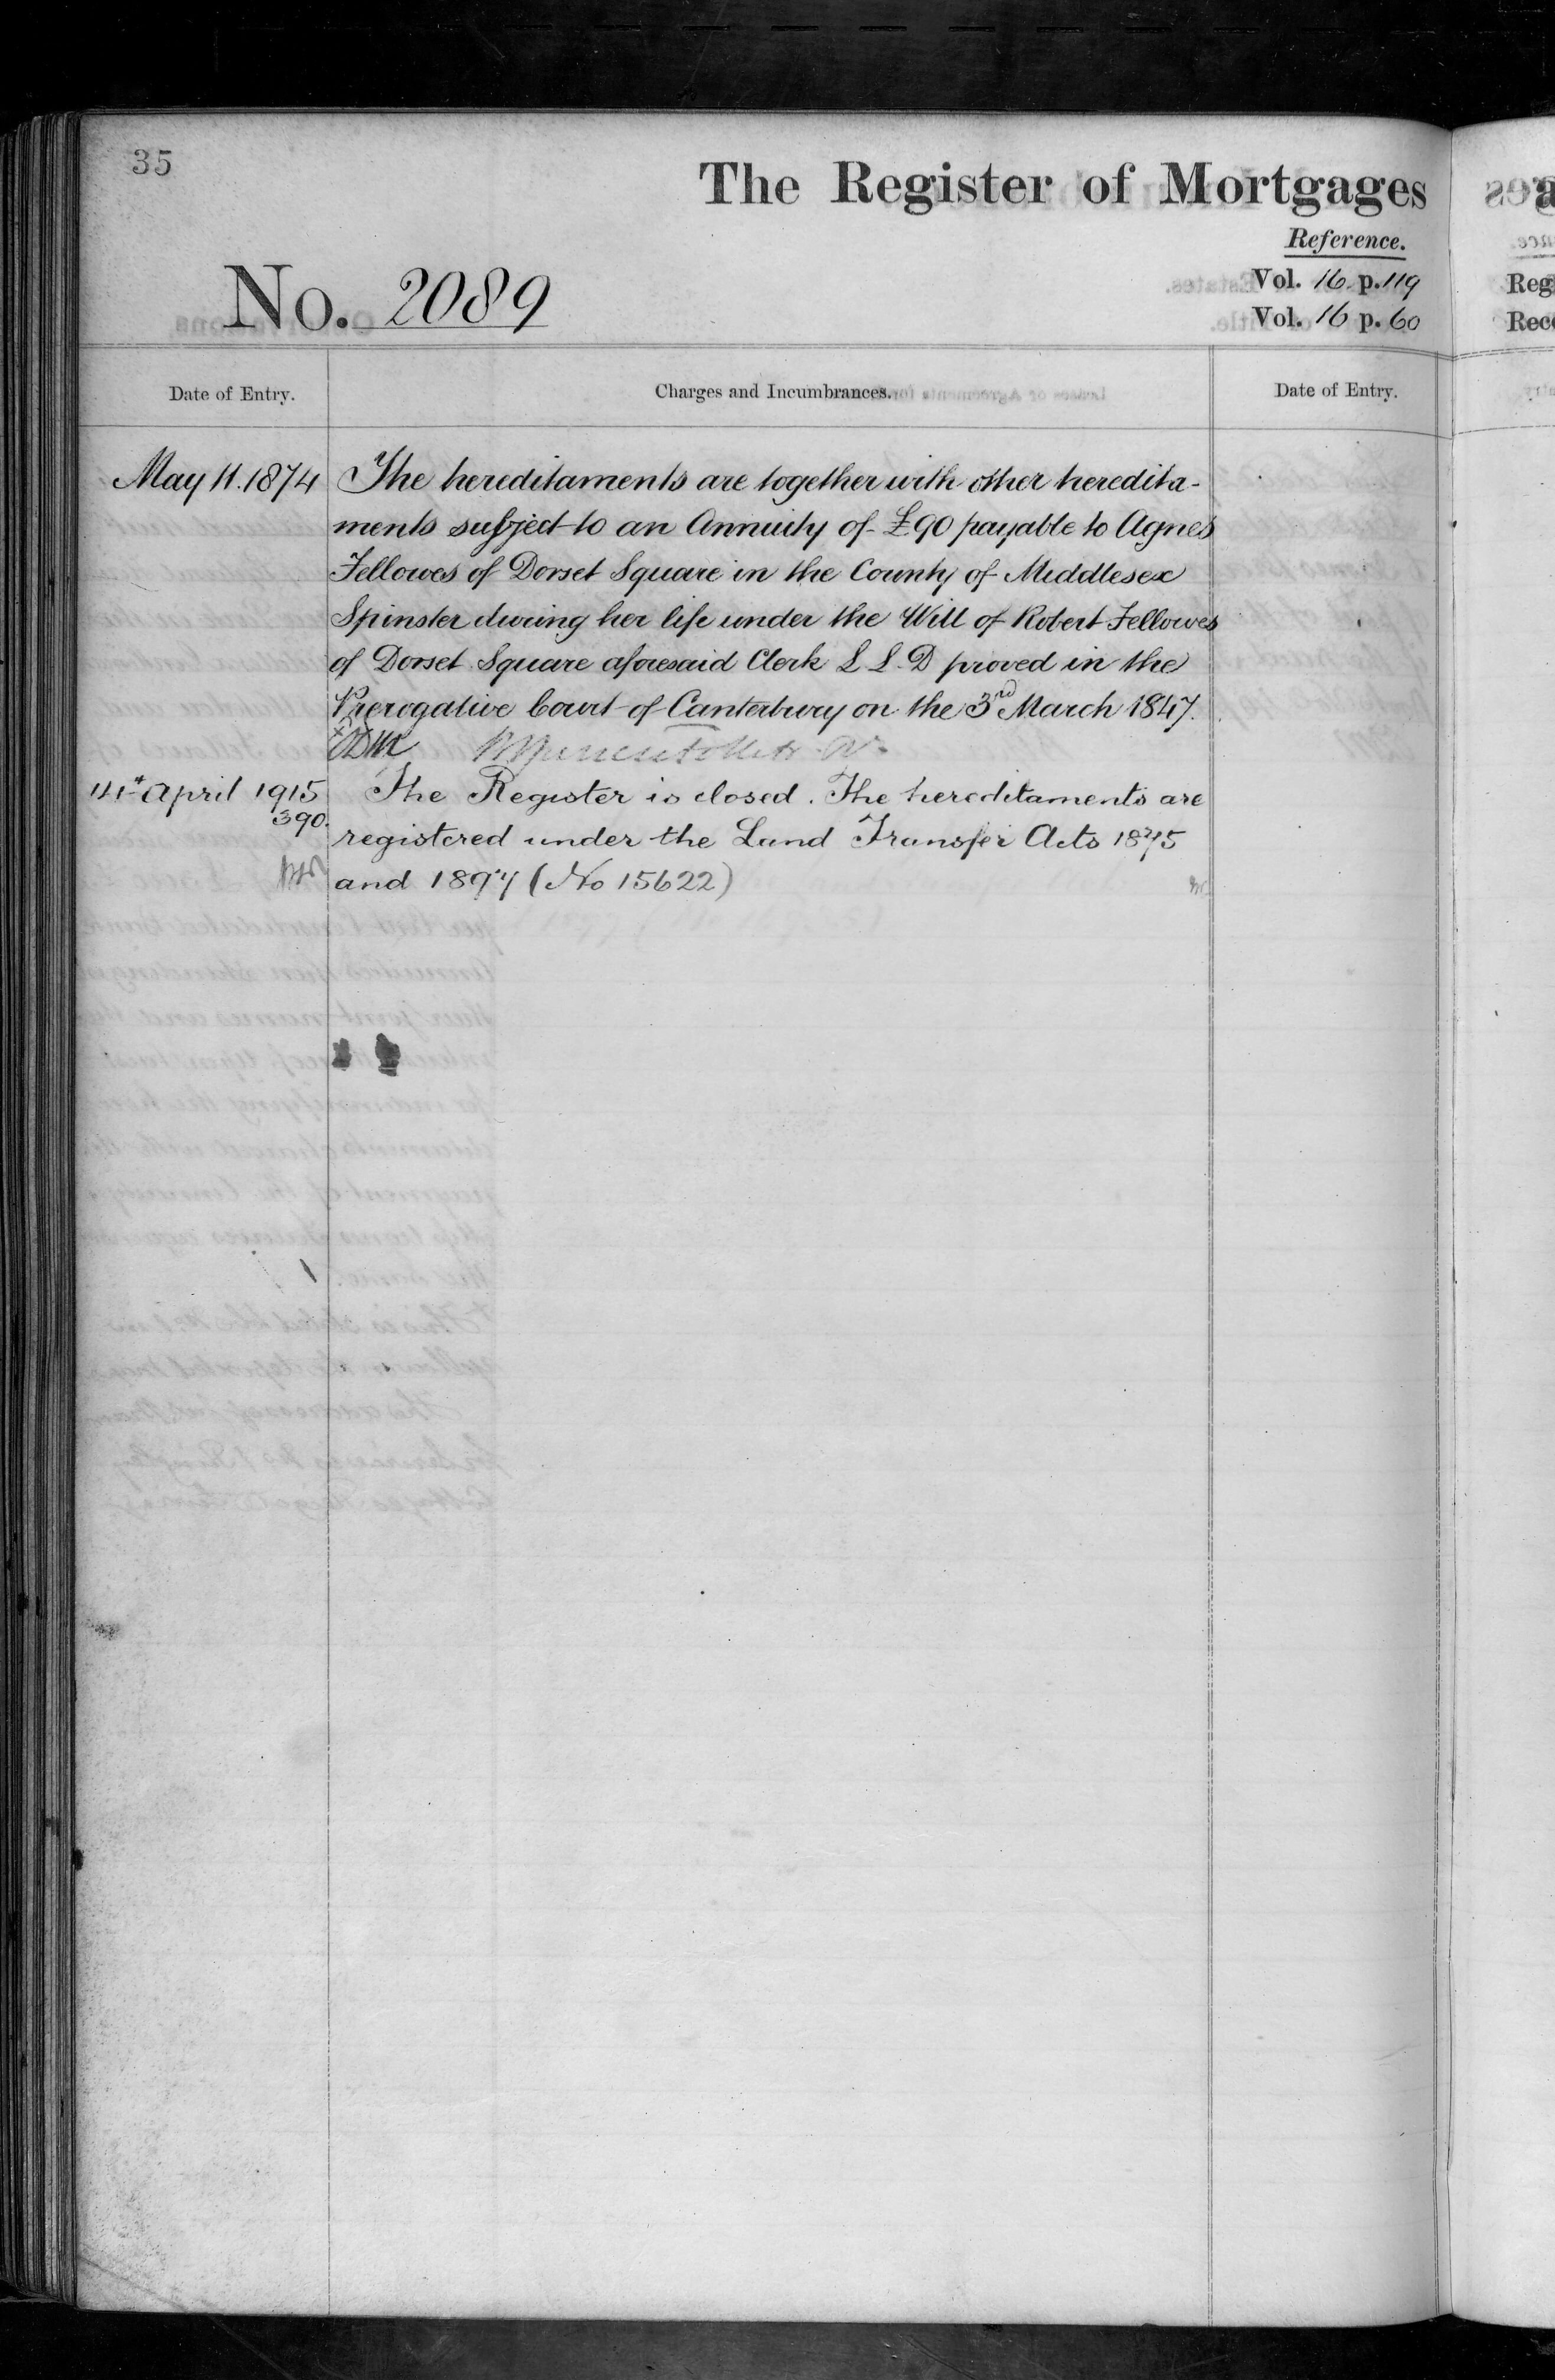 35
The Register of Mortgages
Reference.
No. 2089
Vol. 16. p. 119
Vol. 16 p. 60
Date of Entry.
Charges and Incumbrances.
Date of Entry.
May 11. 1874
The hereditaments are together with other heredita-
ments subject to an Annuity of £90 payable to Agnes
Fellowes of Dorset Square in the County of Middlesex
Spinster during her life under the Will of Robert Fellowes
of Dorset Square aforesaid Clerk L L. D proved in the
Prerogative Court of Canterbury on the 3rd March 1847.
April 1915
390.
The Register is closed. The hereditaments are
registered under the Land Transfer Acts 1875
and 1897 (No 15622)
Reg